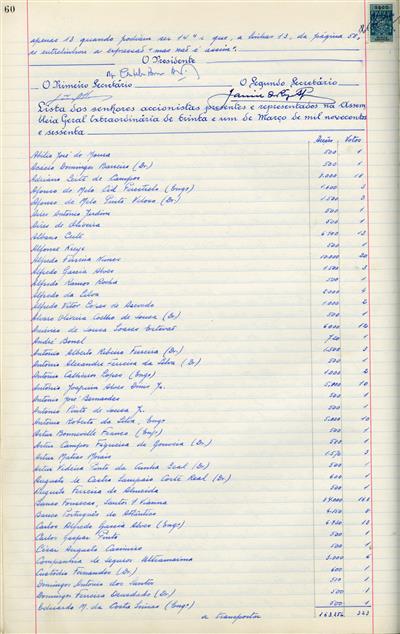 60
apenas 13 quando podiam ser 14" e que, a linhas 13, da página 58,
se entrelinhou a expressão "mas não é assim".
O Presidente
O Primeiro Secretário O Segundo Secretário
Lista dos senhores accionistas presentes e representados na Assem
bleia Geral Extraordinária de trinta e um de Março de mil novecentos
e sessenta
Acções Votos
Abílio José de Moura 500 1
Acácio Domingos Barreiro (Dr.) 500 1
Adriano Certã de Campos
Afonso de Melo Cid Perestrelo (Engº) 3
Afonso de Melo Pinto Veloso (Dr.) 1.500 3
Aires António Jardim 500 1
Aires de Oliveira 500 1
Albano 13
Alfonse 500 1
Alfredo Farria Nunes 10.000 20
Alfredo Garcia Alves 1.500 3
Alfredo Ramos Rocha 500 1
Alfredo da Silva 2.000 4
Alfredo Vitor Cesar de Azevedo 1.000 2
Alvaro Oliveira Coelho de Sousa (Dr.) 500 1
Américo de Sousa Soares 6.000 12
André Bonel 1
António Alberto Ribeiro Ferreira (Dr.) 1.500 3
António Alexandre Ferreira da Silva (Dr.) 500 1
António Calheiros Lopes (Engº) 1.000 2
António Joaquim Alves Diniz Jr. 5.000 10
António José Bernardes 500 1
António Pinto de Sousa Jr. 500 1
António Roberto da Silva, Engº 5.000 10
Artur Bonneville Franco (Engº) 500 1
Artur Campos Figueira de Gouveia (Dr.) 500 1
Artur Matias Morais 3
Artur Videira Pinto da Cunha Leal (Dr.) 500 1
Augusto de Castro Sampaio Corte Real (Dr.) 600 1
Augusto Ferreira de Almeida 500 1
Banco Fonsecas, Santos & Vianna
Banco Português do Atlântico
Carlos Alfredo Garcia Alves (Engº) 13
Carlos Gaspar Pinto 500 1
César Augusto Casimiro 500 1
Companhia de Seguros Ultramarina 3.000 6
Custódio Fernandes (Dr.) 600 1
Domingos António dos Santos 500 1
Domingos Ferreira Deusdado (Dr.) 500 1
Eduardo M. da Costa Seixas (Engº) 500 1
a transportar 323